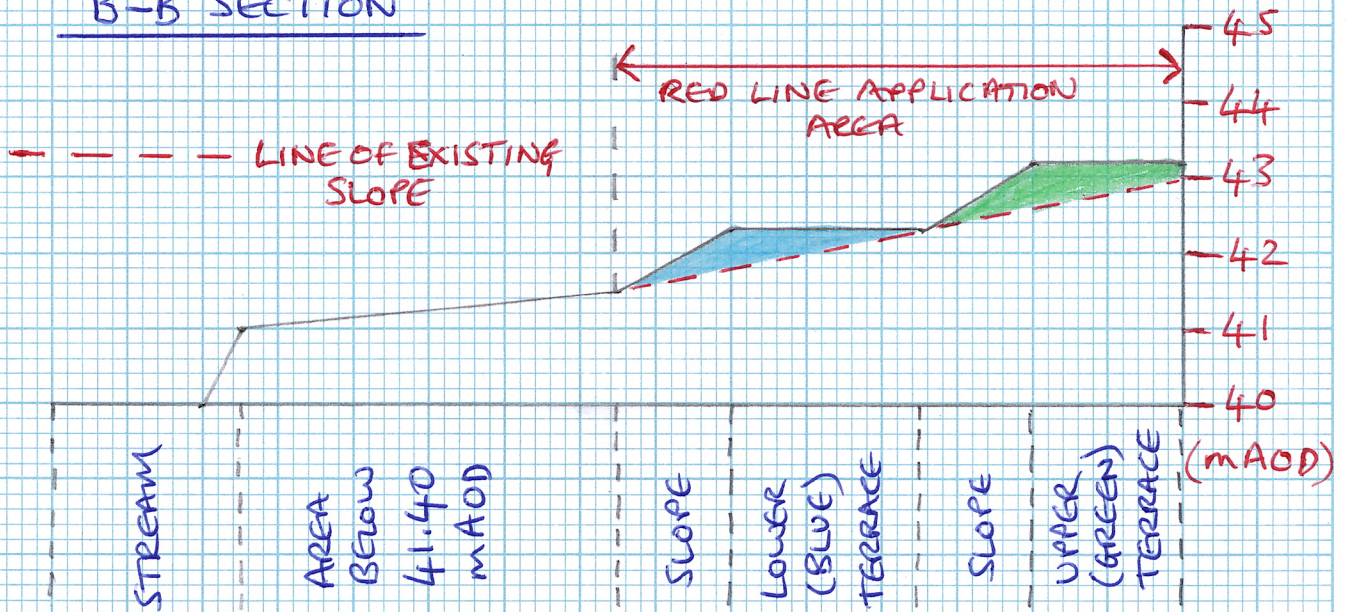 B-B SECTION
RED LINE APPLICATION
AREA
LINE OF EXISTING
SLOPE
45
44
43
42
41
40
(mAOD)
STREAM
AREA
BELOW
41.40
mAOD
SLOPE
LOWER
(BLUE)
TERRACE
SLOPE
UPPER
(GREEN)
TERRACE